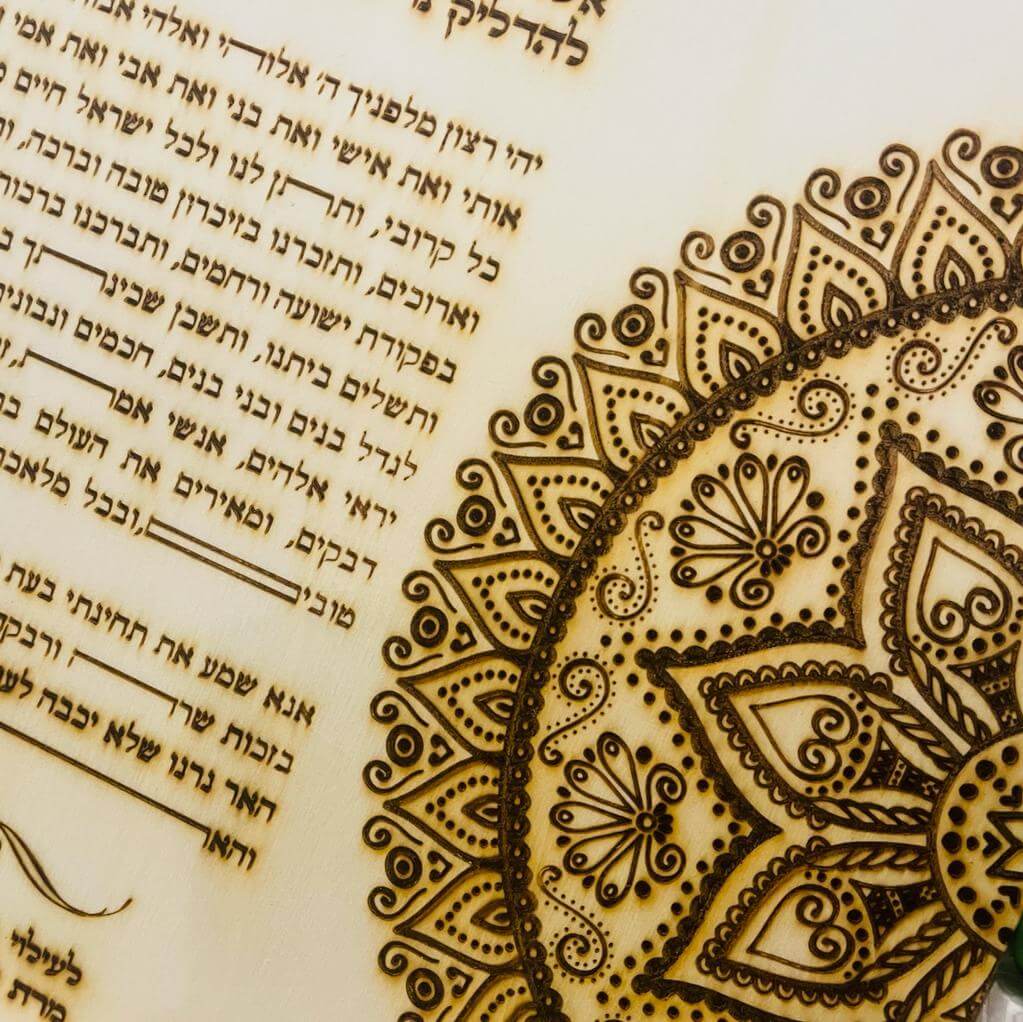 להדליק
יהי רצון מלפניך ה׳ אלוהי ואלהי
אותי ואת אישי ואת בני ואת אבי ואת אמי
כל קרובי, ותתן לנו ולכל ישראל חיים
וארוכים, ותזכרנו בזיכרון טובה וברכה,
בפקודת ישועה ורחמים, ותברכנו ברכות
ותשלים ביתנו, ותשכן שכינתך
לגדל בנים ובני בנים, חכמים ונבונים
יראי אלהים, אנשי אמת,
דבקים, ומאירים את העולם
טובים, ובכל מלאכת
אנא שמע את תחינתי בעת
בזכות שרה ורבקה
האר נרנו שלא יכבה
והאר
לעילוי
מרת